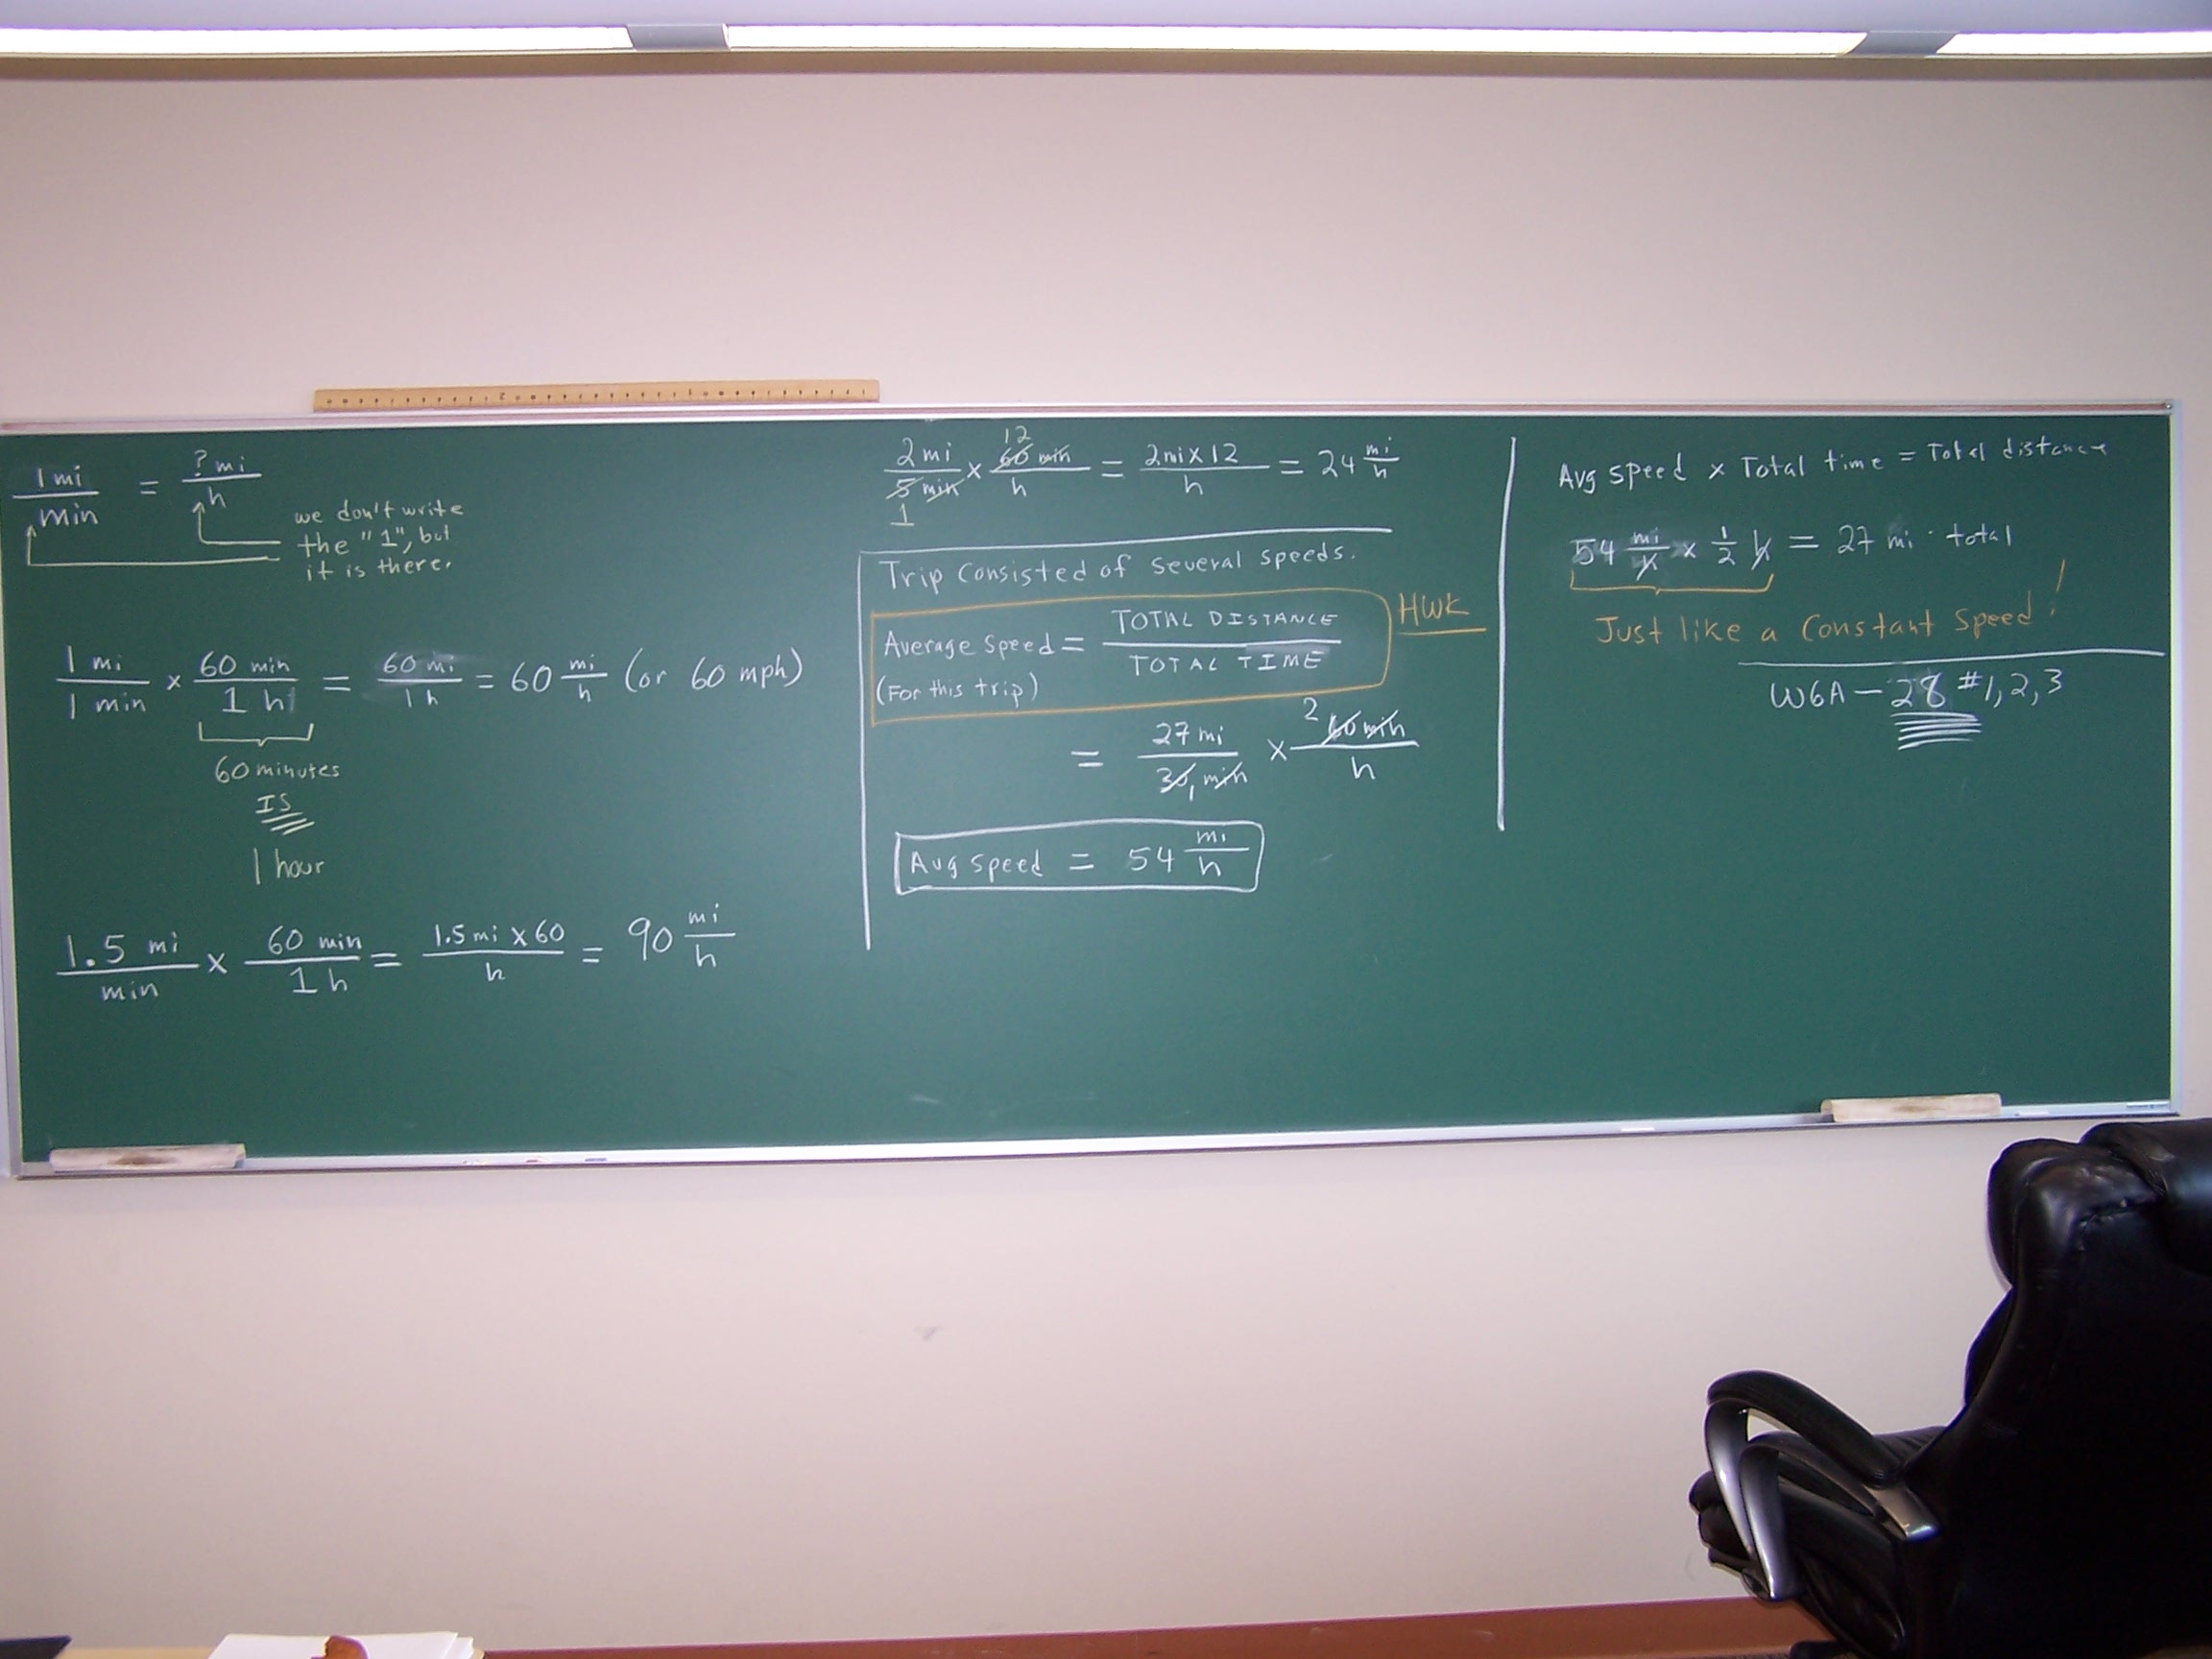 1 mi / min = ? mi / h
we don't write
the "1", but
it is there.
1 mi / 1 min × 60 min / 1 h = 60 mi / 1 h = 60 mi / h (or 60 mph)
60 minutes
IS
1 hour
1.5 mi / min × 60 min / 1 h = 1.5 mi × 60 / h = 90 mi / h
12
2 mi / 5 min × 60 min / h = 2 mi × 12 / h = 24 mi / h
1
Trip consisted of several speeds.
Average speed = TOTAL DISTANCE / TOTAL TIME
(For this trip)
HWK
= 27 mi / 30 1 min × 2 60 min / h
Avg speed = 54 mi / h
Avg speed × Total time = Total distance
54 mi / h × 1/2 h = 27 mi total
Just like a constant speed!
W6A – 28 #1, 2, 3